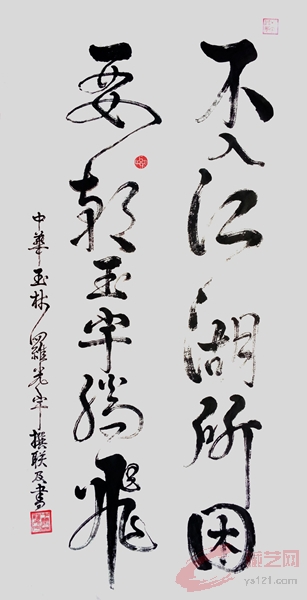 不入江湖所困
要朝玉宇騰飛
中華玉林羅光宇撰联及書
艺网
ys121.com